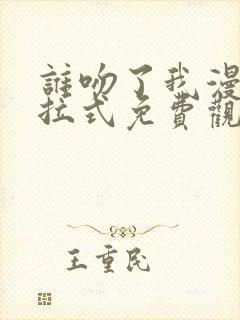 誰吻了我漫
拉式免費觀
王重民